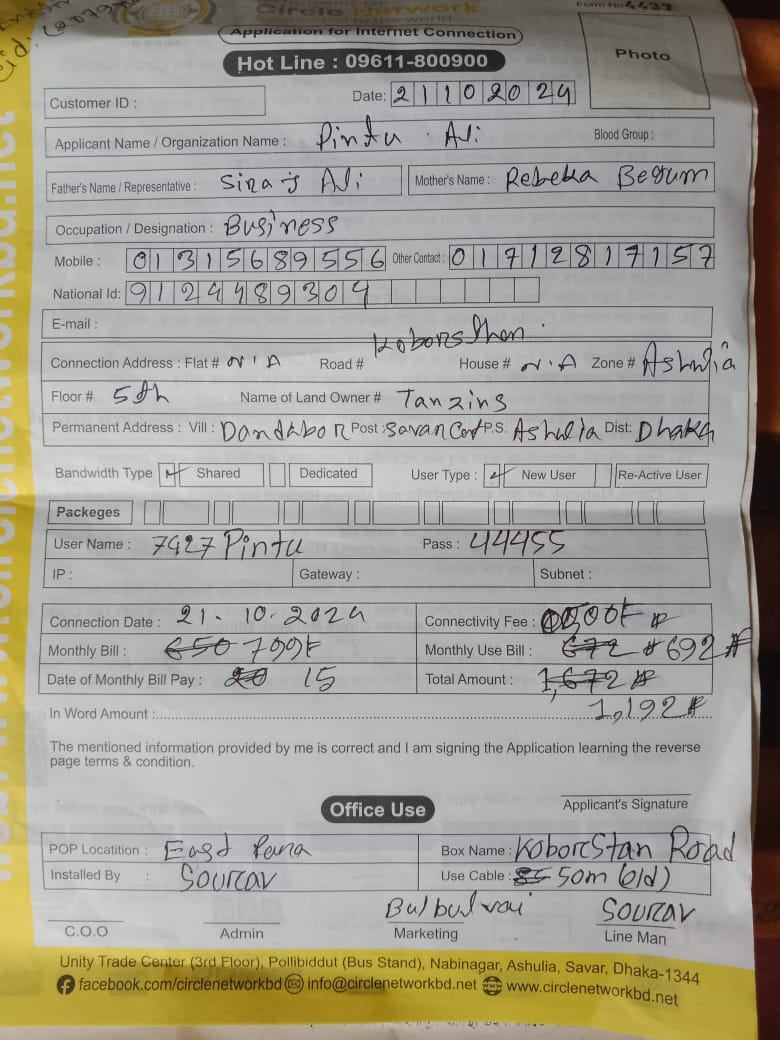 Circle Network
Form No 4437
Application for Internet Connection
Hot Line : 09611-800900
Photo
Customer ID :
Date: 21102024
Applicant Name / Organization Name : Pintu Ali
Blood Group :
Father's Name / Representative : Siraj Ali
Mother's Name : Rebeka Begum
Occupation / Designation : Business
Mobile : 01315689556 Other Contact : 01712817157
National Id: 9124489304
E-mail :
Connection Address : Flat # N.A Road # Koborsthan House # N.A Zone # Ashulia
Floor # 5th Name of Land Owner # Tanzins
Permanent Address : Vill : Dandabor Post : Savar Cant P.S. Ashulia Dist: Dhaka
Bandwidth Type Shared Dedicated User Type : New User Re-Active User
Packeges
User Name : 7427 Pintu Pass : 44455
IP : Gateway : Subnet :
Connection Date : 21. 10. 2024 Connectivity Fee : 500
Monthly Bill : 650 799 Monthly Use Bill : 672 692
Date of Monthly Bill Pay : 20 15 Total Amount : 1,672
In Word Amount : 1,192
The mentioned information provided by me is correct and I am signing the Application learning the reverse
page terms & condition.
Office Use
Applicant's Signature
POP Locatition : East Para Box Name : Koborstan Road
Installed By : Sourav Use Cable : 50m (old)
Bulbul vai Sourav
C.O.O Admin Marketing Line Man
Unity Trade Center (3rd Floor), Pollibiddut (Bus Stand), Nabinagar, Ashulia, Savar, Dhaka-1344
facebook.com/circlenetworkbd info@circlenetworkbd.net www.circlenetworkbd.net